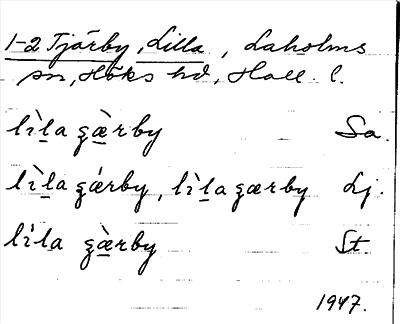 1-2 Tjärby, Lilla, Laholms
sn, Höks hd, Hall. l.
lìla gæ̀rby Sa.
lìla gǽrby, lìla gærby Lj.
líla gæ̀rby St.
1947.